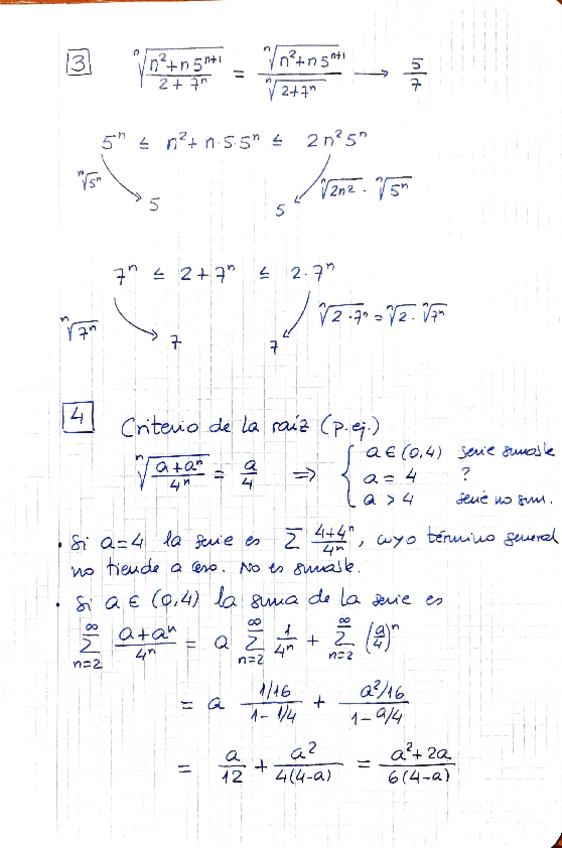 3 ⁿ√((n²+n5ⁿ⁺¹)/(2+7ⁿ)) = ⁿ√(n²+n5ⁿ⁺¹)/ⁿ√(2+7ⁿ) → 5/7
5ⁿ ≤ n²+n·5·5ⁿ ≤ 2n²5ⁿ
ⁿ√5ⁿ 5 5 ⁿ√2n² · ⁿ√5ⁿ
7ⁿ ≤ 2+7ⁿ ≤ 2·7ⁿ
ⁿ√7ⁿ 7 7 ⁿ√2·7ⁿ = ⁿ√2 · ⁿ√7ⁿ
4 Criterio de la raíz (p.ej.)
ⁿ√((a+aⁿ)/4ⁿ) = a/4 ⇒ { a ∈ (0,4) serie sumable
a = 4 ?
a > 4 serie no sum.
• Si a=4 la serie es Σ (4+4ⁿ)/4ⁿ, cuyo término general
no tiende a cero. No es sumable.
• Si a ∈ (0,4) la suma de la serie es
∞Σn=2 (a+aⁿ)/4ⁿ = a ∞Σn=2 1/4ⁿ + ∞Σn=2 (a/4)ⁿ
= a (1/16)/(1-1/4) + (a²/16)/(1-a/4)
= a/12 + a²/(4(4-a)) = (a²+2a)/(6(4-a))